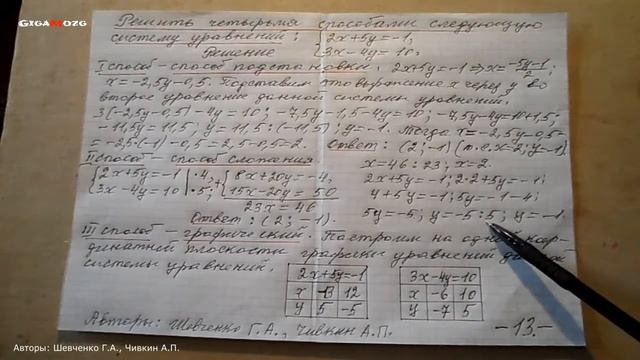 GIGAMOZG
Решить четырьмя способами следующую
систему уравнений: { 2x+5y=-1,
Решение { 3x-4y=10.
I способ – способ подстановки. 2x+5y=-1 ⇒ x=(-5y-1)/2;
x=-2,5y-0,5. Подставим это выражение x через y во
второе уравнение данной системы уравнений.
3(-2,5y-0,5)-4y=10; -7,5y-1,5-4y=10; -7,5y-4y=10+1,5;
-11,5y=11,5; y=11,5:(-11,5); y=-1. Тогда x=-2,5y-0,5=
=-2,5·(-1)-0,5=2,5-0,5=2. Ответ: (2;-1) (т.е. x=2; y=-1).
II способ – способ сложения. x=46:23; x=2.
{ 2x+5y=-1 |·4, + { 8x+20y=-4, 2x+5y=-1; 2·2+5y=-1;
{ 3x-4y=10 |·5; { 15x-20y=50 4+5y=-1; 5y=-1-4;
23x=46 5y=-5; y=-5:5; y=-1
Ответ: (2; -1).
III способ – графический. Построим на одной коор-
динатной плоскости графики уравнений данной
системы уравнений.
2x+5y=-1 3x-4y=10
x -13 12 x -6 10
y 5 -5 y -7 5
Авторы: Шевченко Г.А., Чивкин А.П. -13.-
Авторы: Шевченко Г.А., Чивкин А.П.